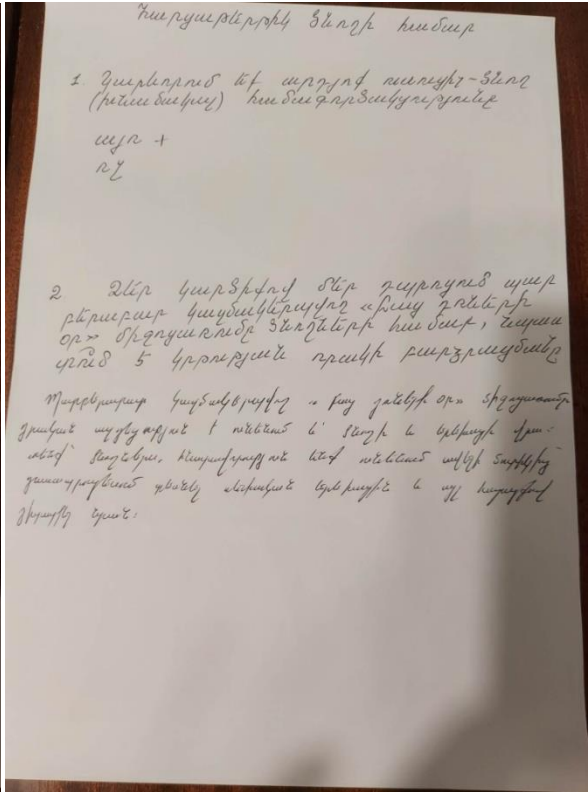 Հարցաթերթիկ Ծնողի համար
1. Կարևորում եք արդյոք ուսուցիչ-Ծնող
(խնամակալ) համագործակցությունը
այո +
ոչ
2 Ձեր կարծիքով մեր դպրոցում պար
բերաբար կազմակերպվող «բաց դռների
օր» միջոցառումը Ծնողների համար, նպաս
տում 5 կրթության որակի բարձրացմանը
Պարբերաբար կազմակերպվող «բաց դռների օր» միջոցառումը
դրական ազդեցություն է ունենում և՛ ծնողի և երեխայի վրա:
հնարավորություն ունենում ավելի
տեսնել սեփական երեխային և այլ
նրան: